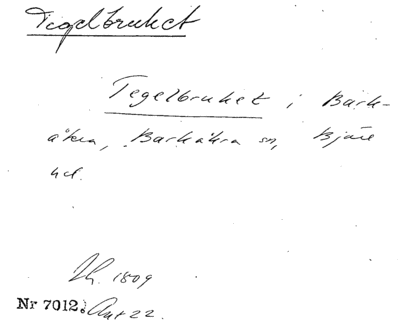 Tegelbruket
Tegelbruket i Bark-
åkra, Barkåkra sn, Bjäre
hd.
1809
Nr 7012. Ant 22.